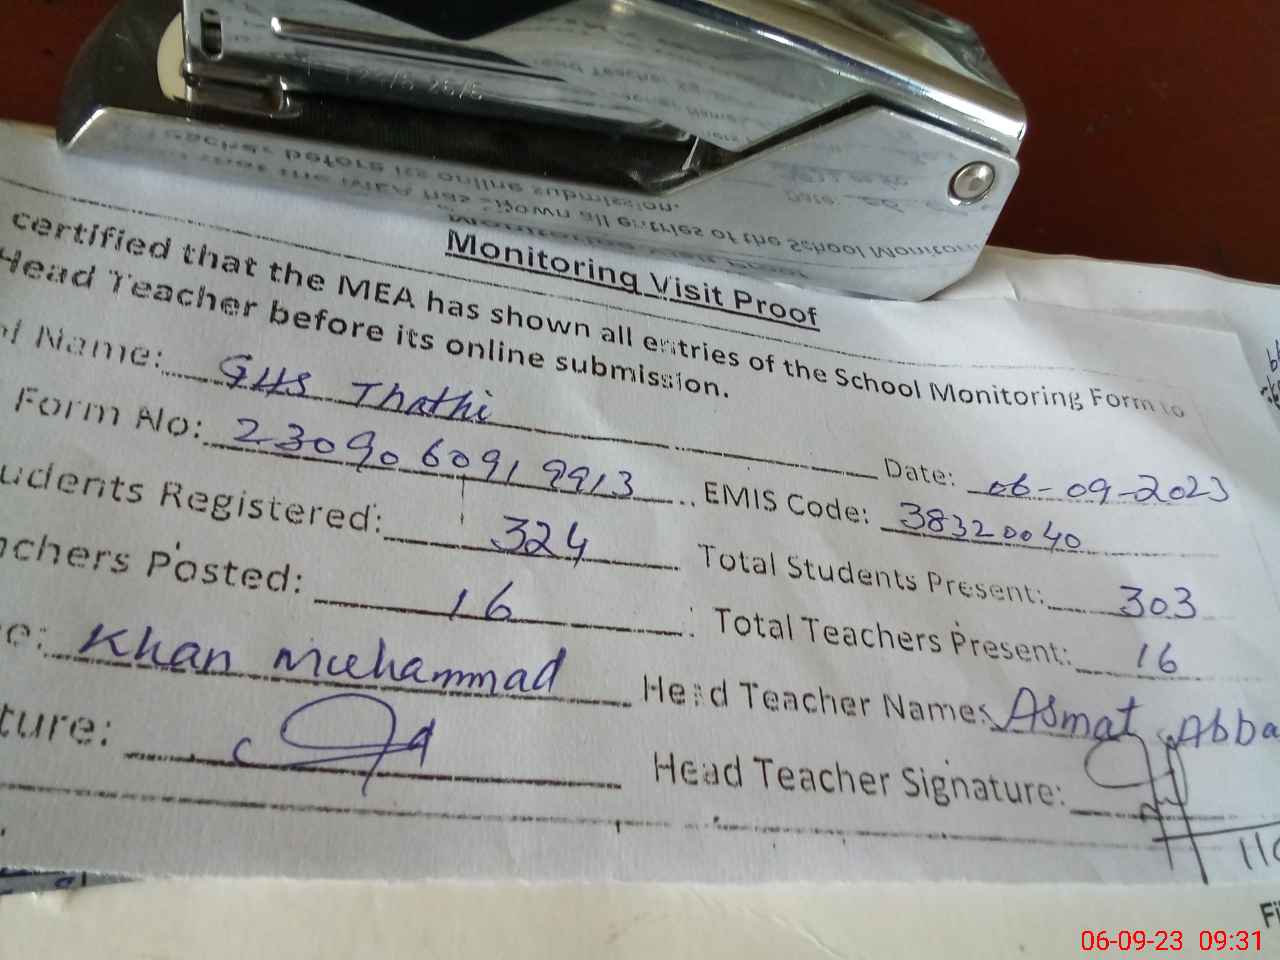 Monitoring Visit Proof
certified that the MEA has shown all entries of the School Monitoring Form to
Head Teacher before its online submission.
Name: GHS Thathi Date: 06-09-2023
Form No: 2309060919913 EMIS Code: 38320040
udents Registered: 324 Total Students Present: 303
chers Posted: 16 Total Teachers Present: 16
e: Khan Muhammad Head Teacher Name: Asmat Abba
ture: Head Teacher Signature:
06-09-23 09:31